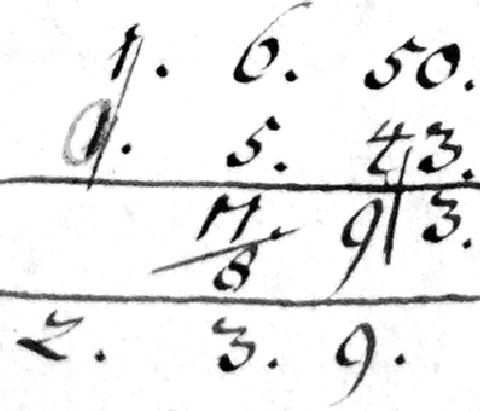 1. 6. 50.
5. 43.
11. 9|3.
8
2. 3. 9.